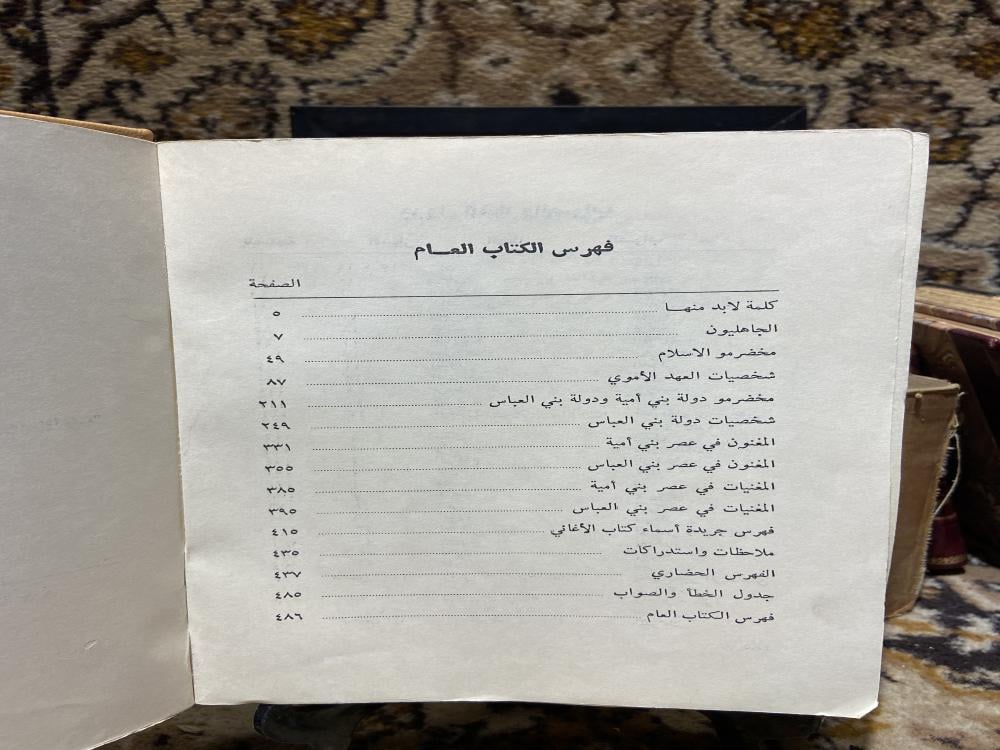 فهرس الكتاب العـــام
الصفحة
كلمة لابد منهـــا ٥
الجاهليون ٧
مخضرمو الاسلام ٤٩
شخصيات العهد الأموي ٨٧
مخضرمو دولة بني أمية ودولة بني العباس ٢١١
شخصيات دولة بني العباس ٢٤٩
المغنون في عصر بني أمية ٣٣١
المغنون في عصر بني العباس ٣٥٥
المغنيات في عصر بني أمية ٣٨٥
المغنيات في عصر بني العباس ٣٩٥
فهرس جريدة أسماء كتاب الأغاني ٤١٥
ملاحظات واستدراكات ٤٣٥
الفهرس الحضاري ٤٣٧
جدول الخطأ والصواب ٤٨٥
فهرس الكتاب العام ٤٨٦